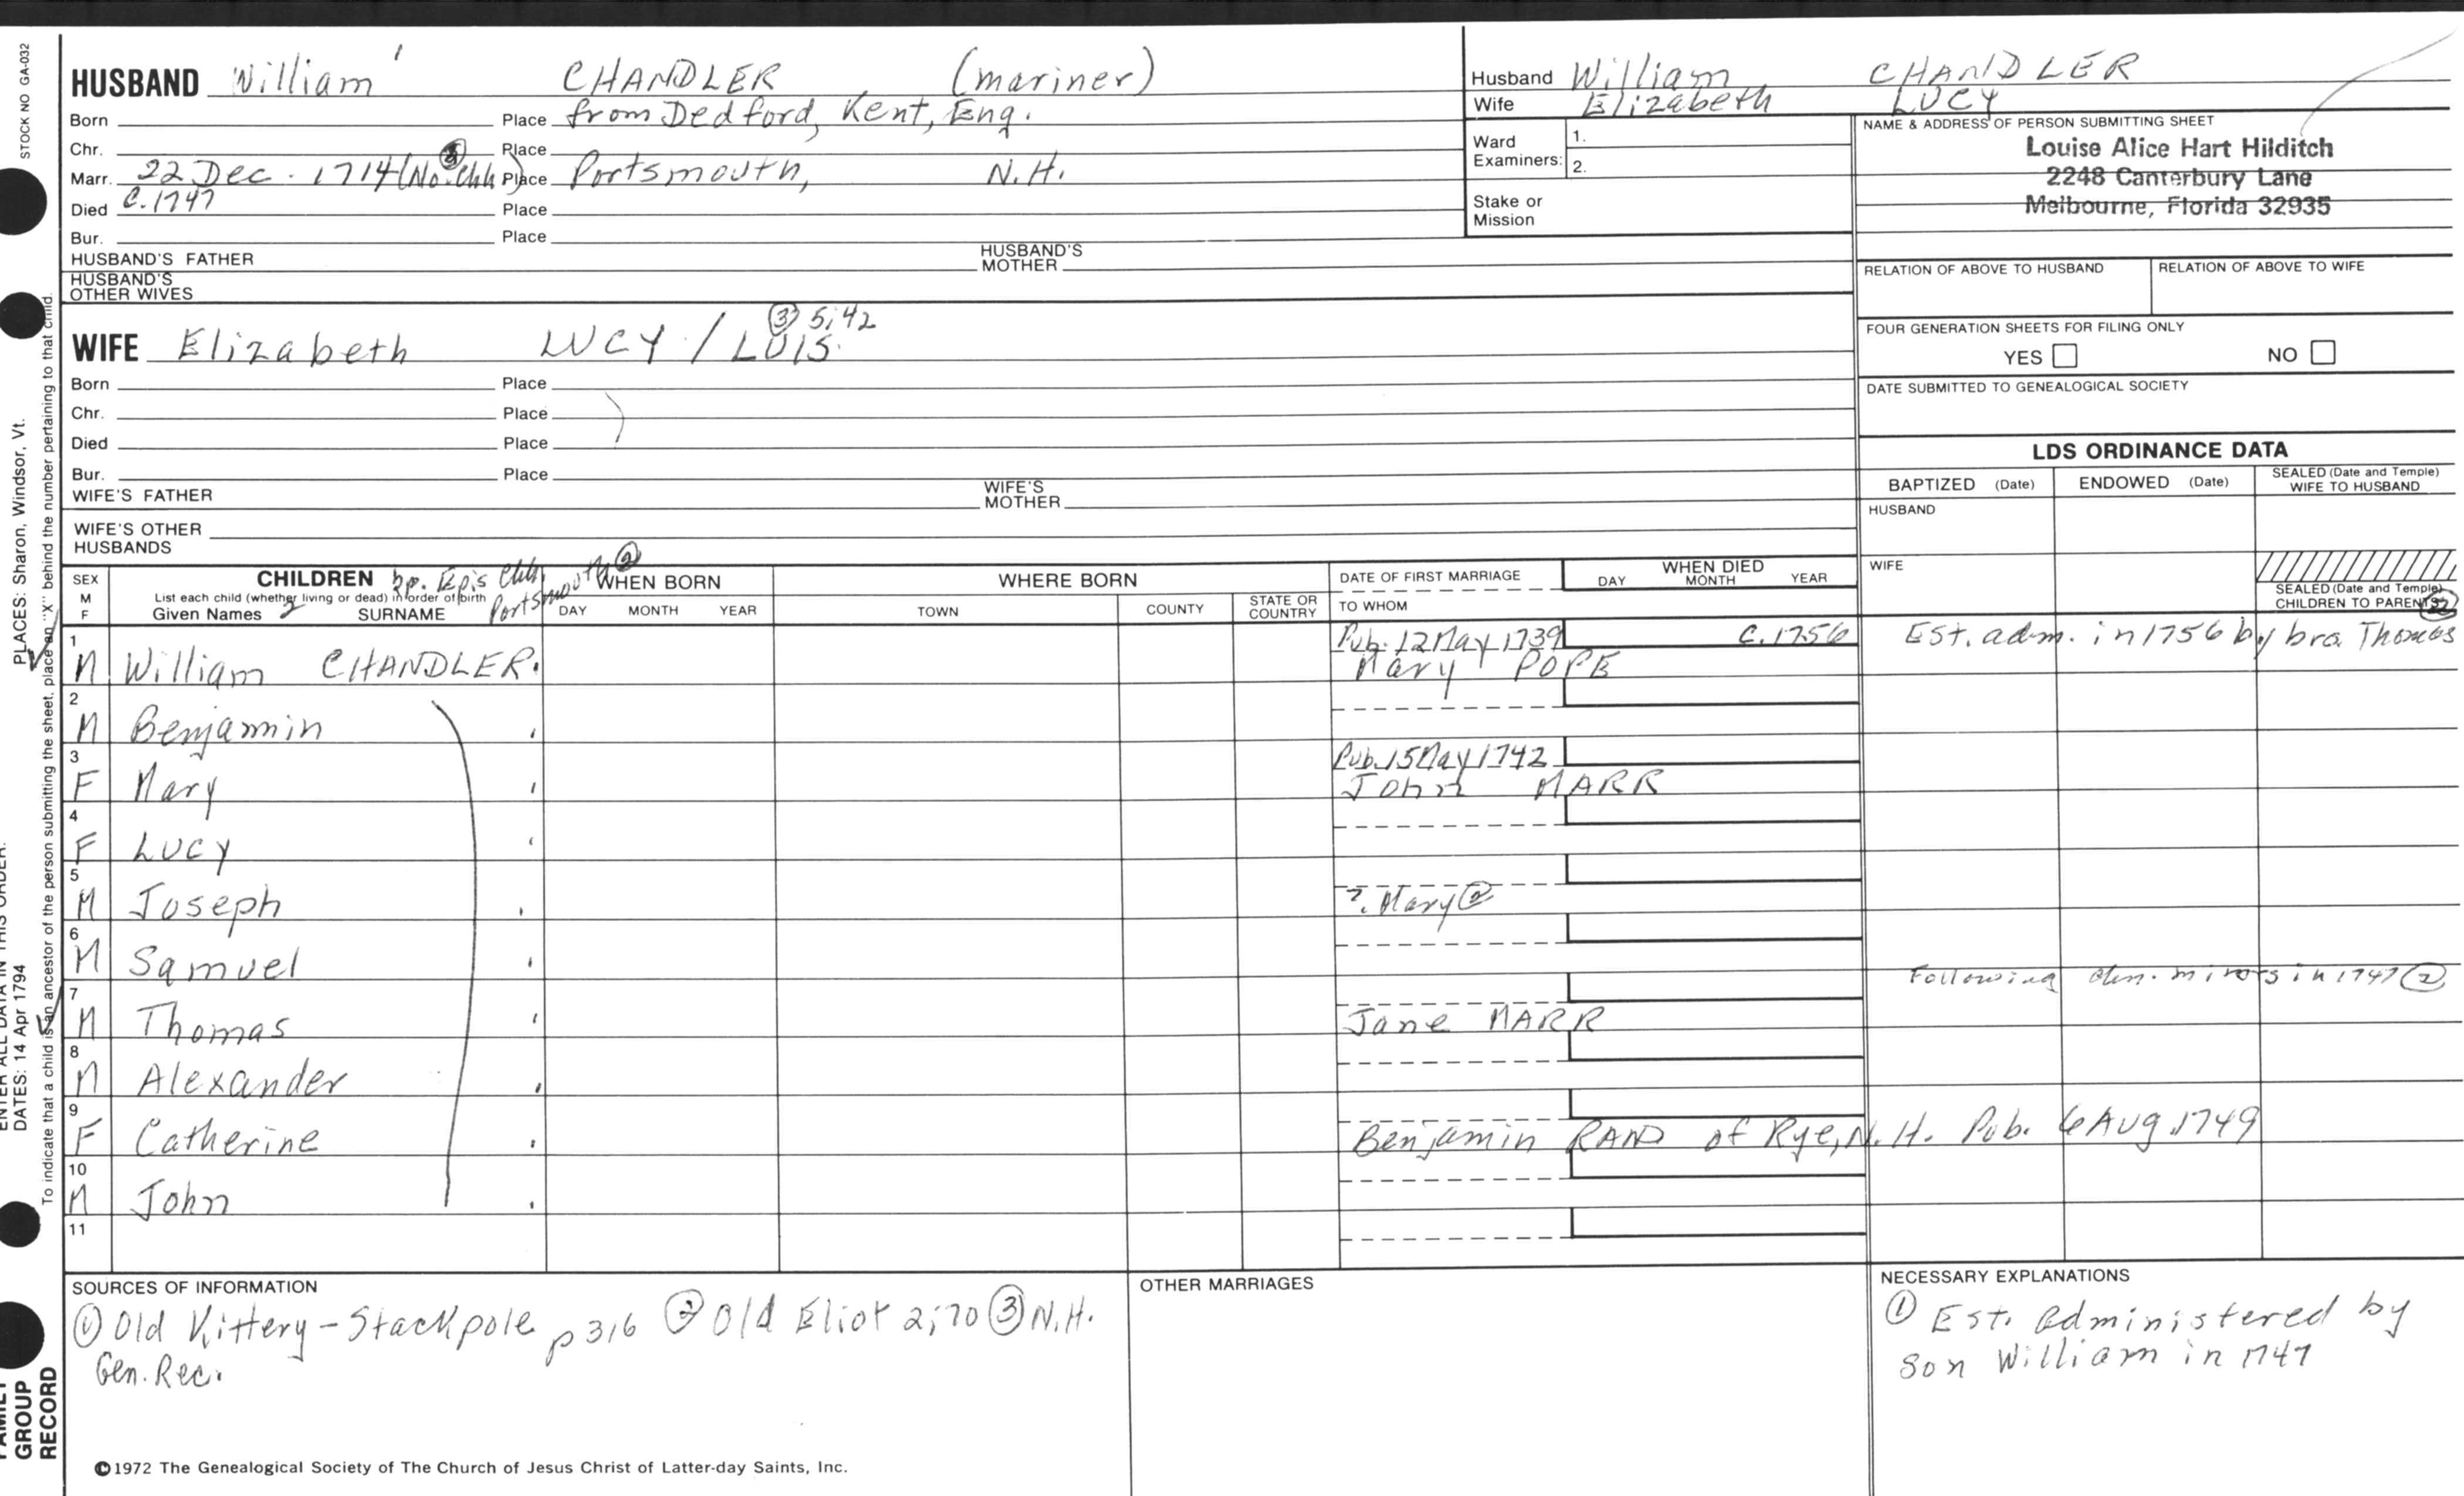 STOCK NO GA-032
HUSBAND William CHANDLER (mariner)
Born Place from Dedford, Kent, Eng.
Chr. Place
Marr. 22 Dec. 1714 (No. Chh) Place Portsmouth, N.H.
Died C. 1747 Place
Bur. Place
HUSBAND'S FATHER HUSBAND'S MOTHER
HUSBAND'S OTHER WIVES
Husband William CHANDLER
Wife Elizabeth LUCY
Ward Examiners: 1.
2.
Stake or Mission
NAME & ADDRESS OF PERSON SUBMITTING SHEET
Louise Alice Hart Hilditch
2248 Canterbury Lane
Melbourne, Florida 32935
RELATION OF ABOVE TO HUSBAND RELATION OF ABOVE TO WIFE
FOUR GENERATION SHEETS FOR FILING ONLY
YES NO
DATE SUBMITTED TO GENEALOGICAL SOCIETY
③ 5;42
WIFE Elizabeth LUCY / LUIS.
Born Place
Chr. Place
Died Place
Bur. Place
WIFE'S FATHER WIFE'S MOTHER
WIFE'S OTHER HUSBANDS
LDS ORDINANCE DATA
BAPTIZED (Date) ENDOWED (Date) SEALED (Date and Temple) WIFE TO HUSBAND
HUSBAND
WIFE
SEALED (Date and Temple) CHILDREN TO PARENTS
SEX M F
CHILDREN bp. Epis Chh. Portsmouth ②
List each child (whether living or dead) in order of birth
Given Names SURNAME
WHEN BORN
DAY MONTH YEAR
WHERE BORN
TOWN COUNTY STATE OR COUNTRY
DATE OF FIRST MARRIAGE
TO WHOM
WHEN DIED
DAY MONTH YEAR
1 M William CHANDLER. Pub. 12 May 1739 Mary POPE C. 1756 Est. adm. in 1756 by bro. Thomas
2 M Benjamin
3 F Mary Pub. 15 May 1742 John MARR
4 F Lucy
5 M Joseph ?. Mary ②
6 M Samuel
Following in 1747 ②
7 M Thomas Jane MARR
8 M Alexander
9 F Catherine Benjamin RAND of Rye, N.H. Pub. 6 Aug. 1749
10 M John
11
SOURCES OF INFORMATION
① Old Kittery - Stackpole p 316 ② Old Eliot 2;70 ③ N.H.
Gen. Rec.
OTHER MARRIAGES
NECESSARY EXPLANATIONS
① Est. Administered by
son William in 1747
©1972 The Genealogical Society of The Church of Jesus Christ of Latter-day Saints, Inc.
PLACES: Sharon, Windsor, Vt.
To indicate that a child is an ancestor of the person submitting the sheet, place an "X" behind the number pertaining to that child.
ENTER ALL DATA IN THIS ORDER:
DATES: 14 Apr 1794
FAMILY GROUP RECORD